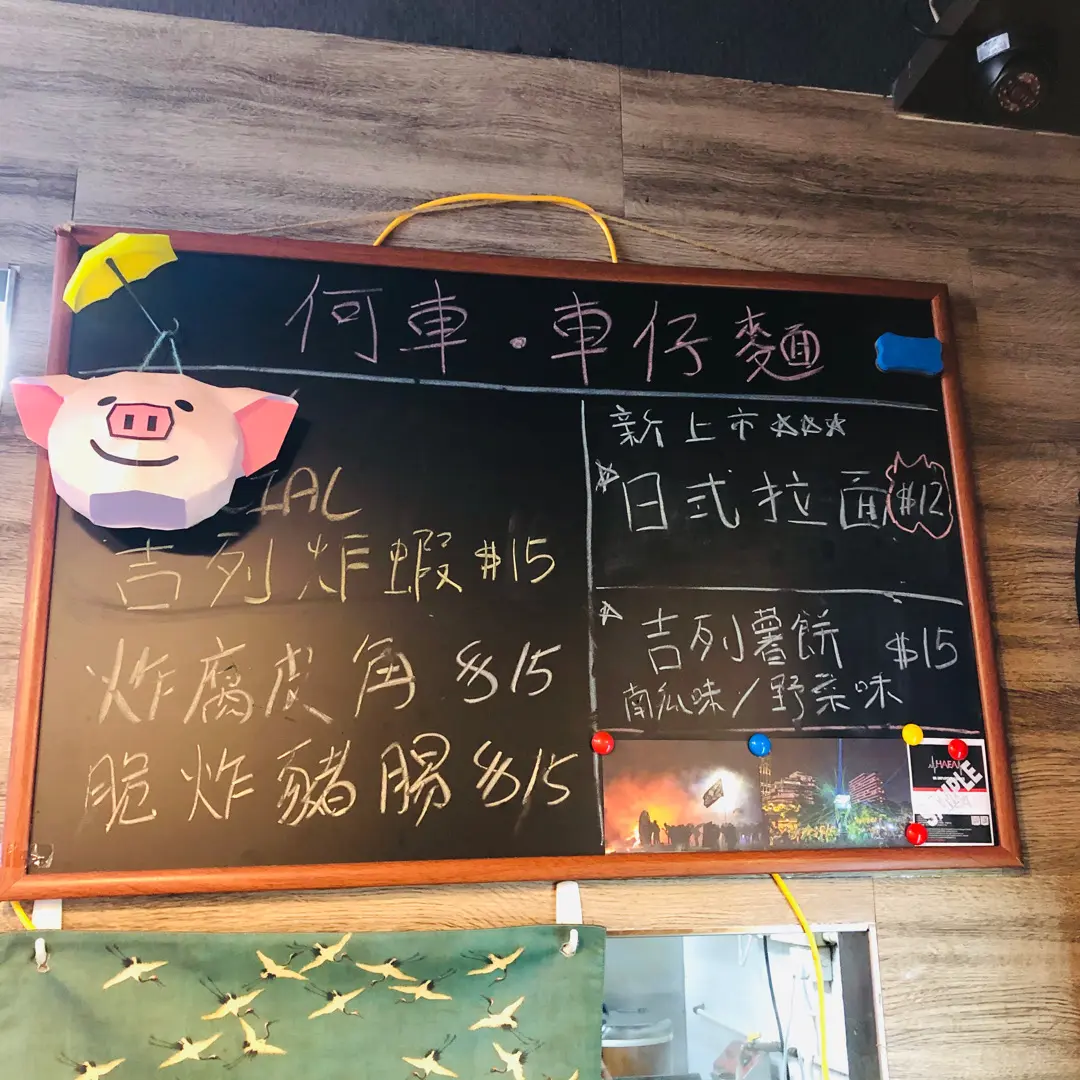 何車·車仔麵
IAL
吉列炸蝦 $15
炸腐皮角 $15
脆炸豬腸 $15
新上市☆☆☆
☆日式拉面 $12
☆吉列薯餅 $15
南瓜味/野菜味